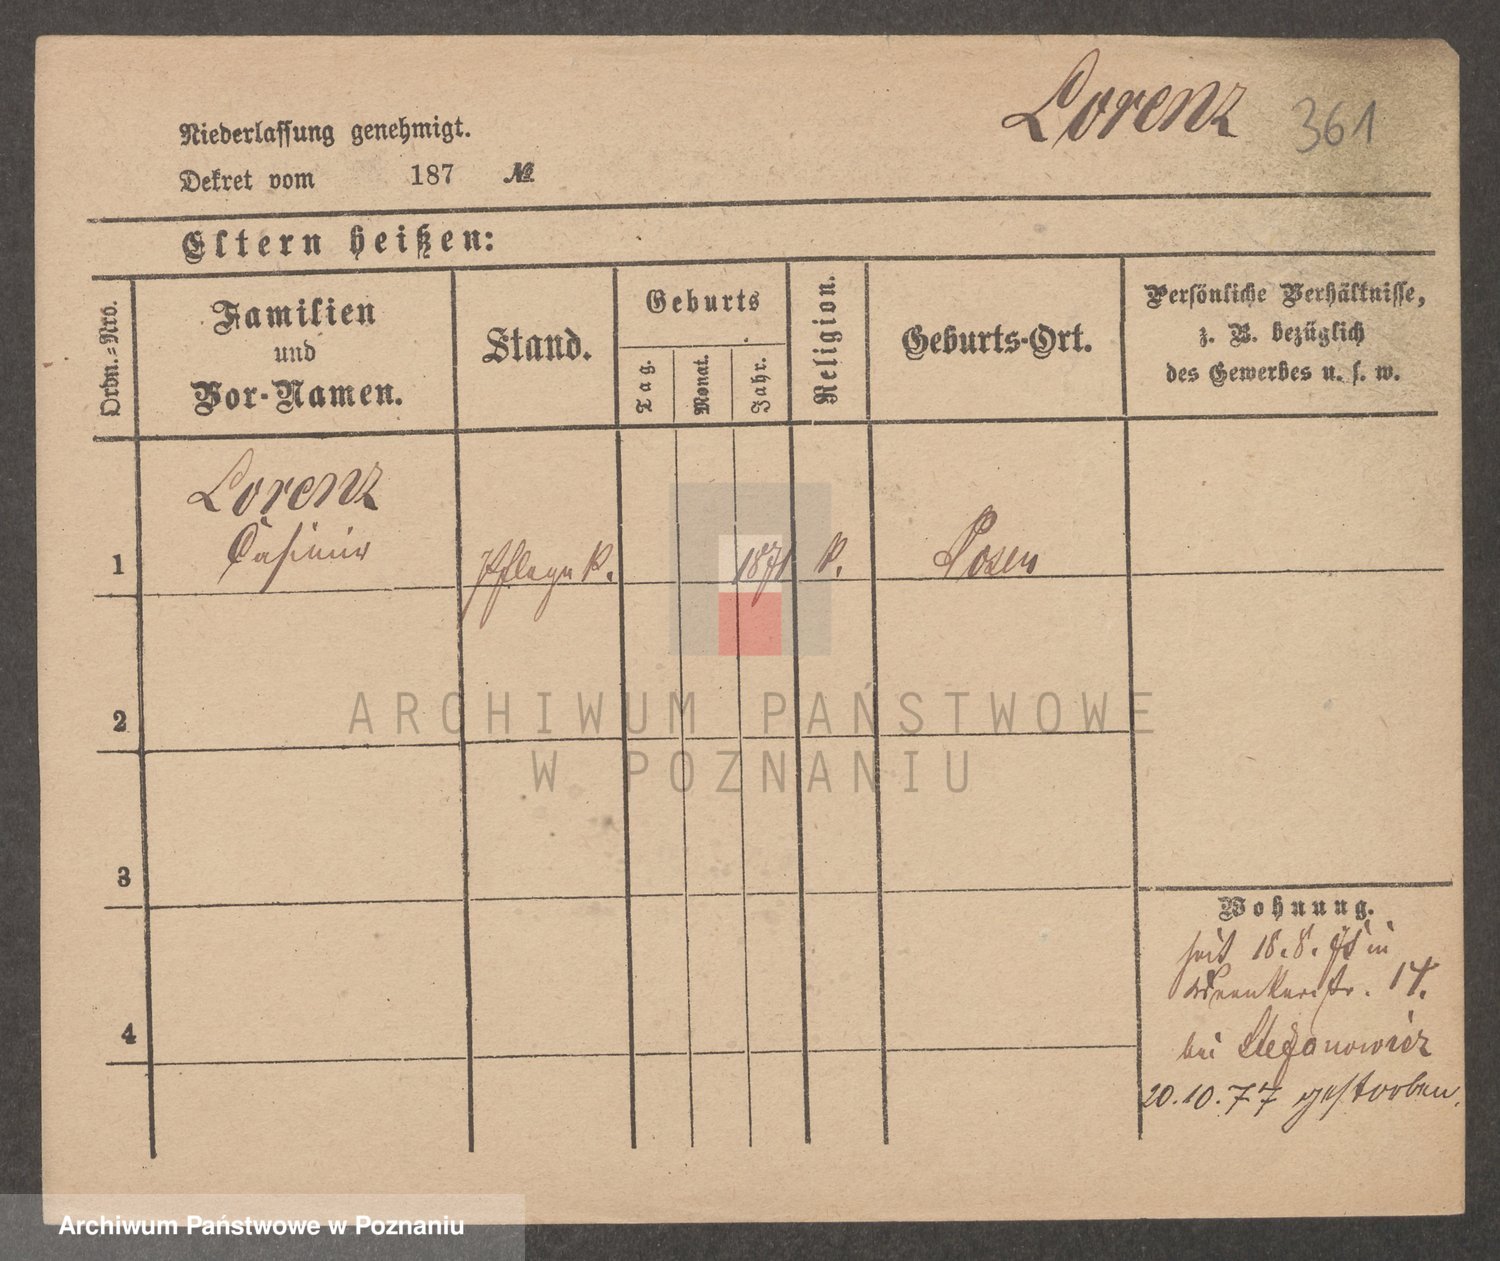 Lorenz 361
Niederlassung genehmigt.
Dekret vom 187 №
Eltern heißen:
Ordn.=Nro.
Familien
und
Vor-Namen.
Stand.
Geburts
Tag.
Monat.
Jahr.
Religion.
Geburts-Ort.
Persönliche Verhältnisse,
z. B. bezüglich
des Gewerbes u. s. w.
Lorenz
1 Casimir Pflege K. 1871 k. Posen
2
3
4
Wohnung.
seit 18.8. in
str. 14.
bei Stefanowicz
20.10.77 gestorben.
ARCHIWUM PAŃSTWOWE
W POZNANIU
Archiwum Państwowe w Poznaniu